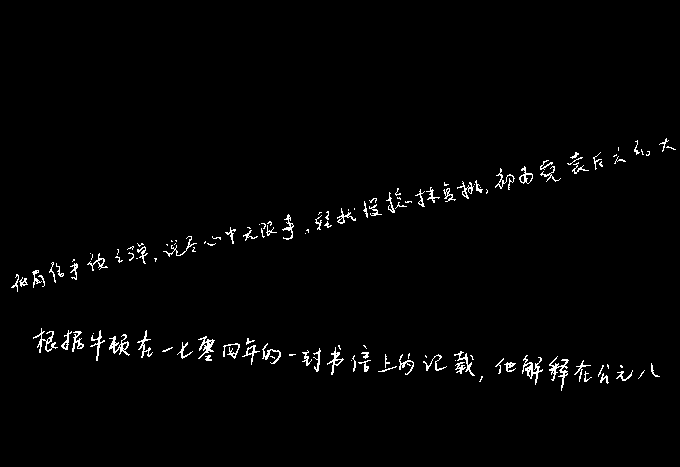 低眉信手续续弹，说尽心中无限事，轻拢慢捻抹复挑，初为霓裳后六幺。大
根据牛顿在一七零四年的一封书信上的记载，他解释在公元八